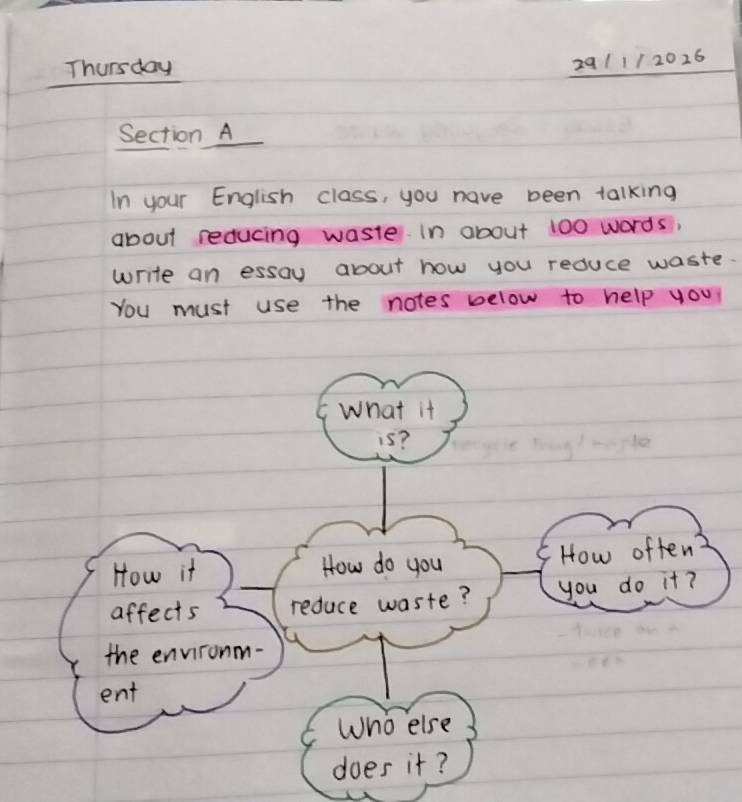 Thursday
29/1/2026
Section A
In your English class, you have been talking
about reducing waste. In about 100 words,
write an essay about how you reduce waste.
You must use the notes below to help you.
What it
is?
How it
affects
the environm-
ent
How do you
reduce waste?
How often
you do it?
Who else
does it?